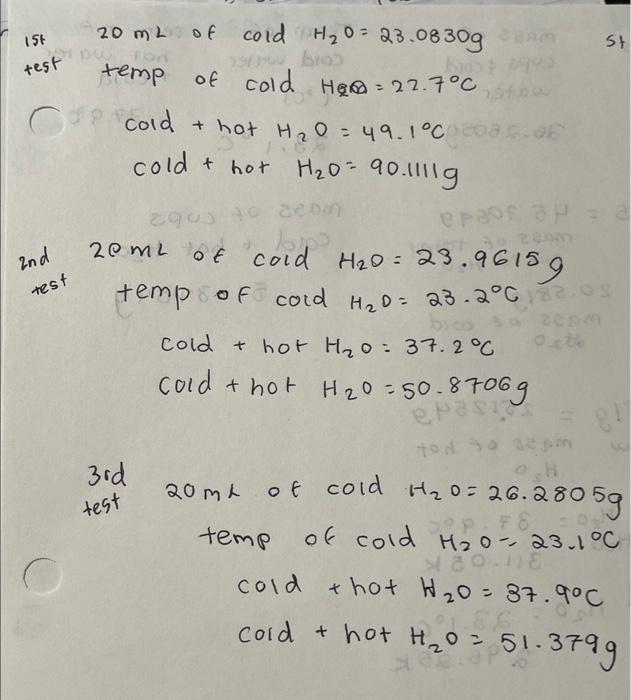 1st test 20 mL of cold H₂O = 23.0830g
temp of cold H₂O = 22.7°C
cold + hot H₂O = 49.1°C
cold + hot H₂O = 90.1111g
2nd test 20 mL of cold H₂O = 23.9615g
temp of cold H₂O = 23.2°C
cold + hot H₂O = 37.2°C
cold + hot H₂O = 50.8706g
3rd test 20 mL of cold H₂O = 26.2805g
temp of cold H₂O = 23.1°C
cold + hot H₂O = 37.9°C
cold + hot H₂O = 51.379g